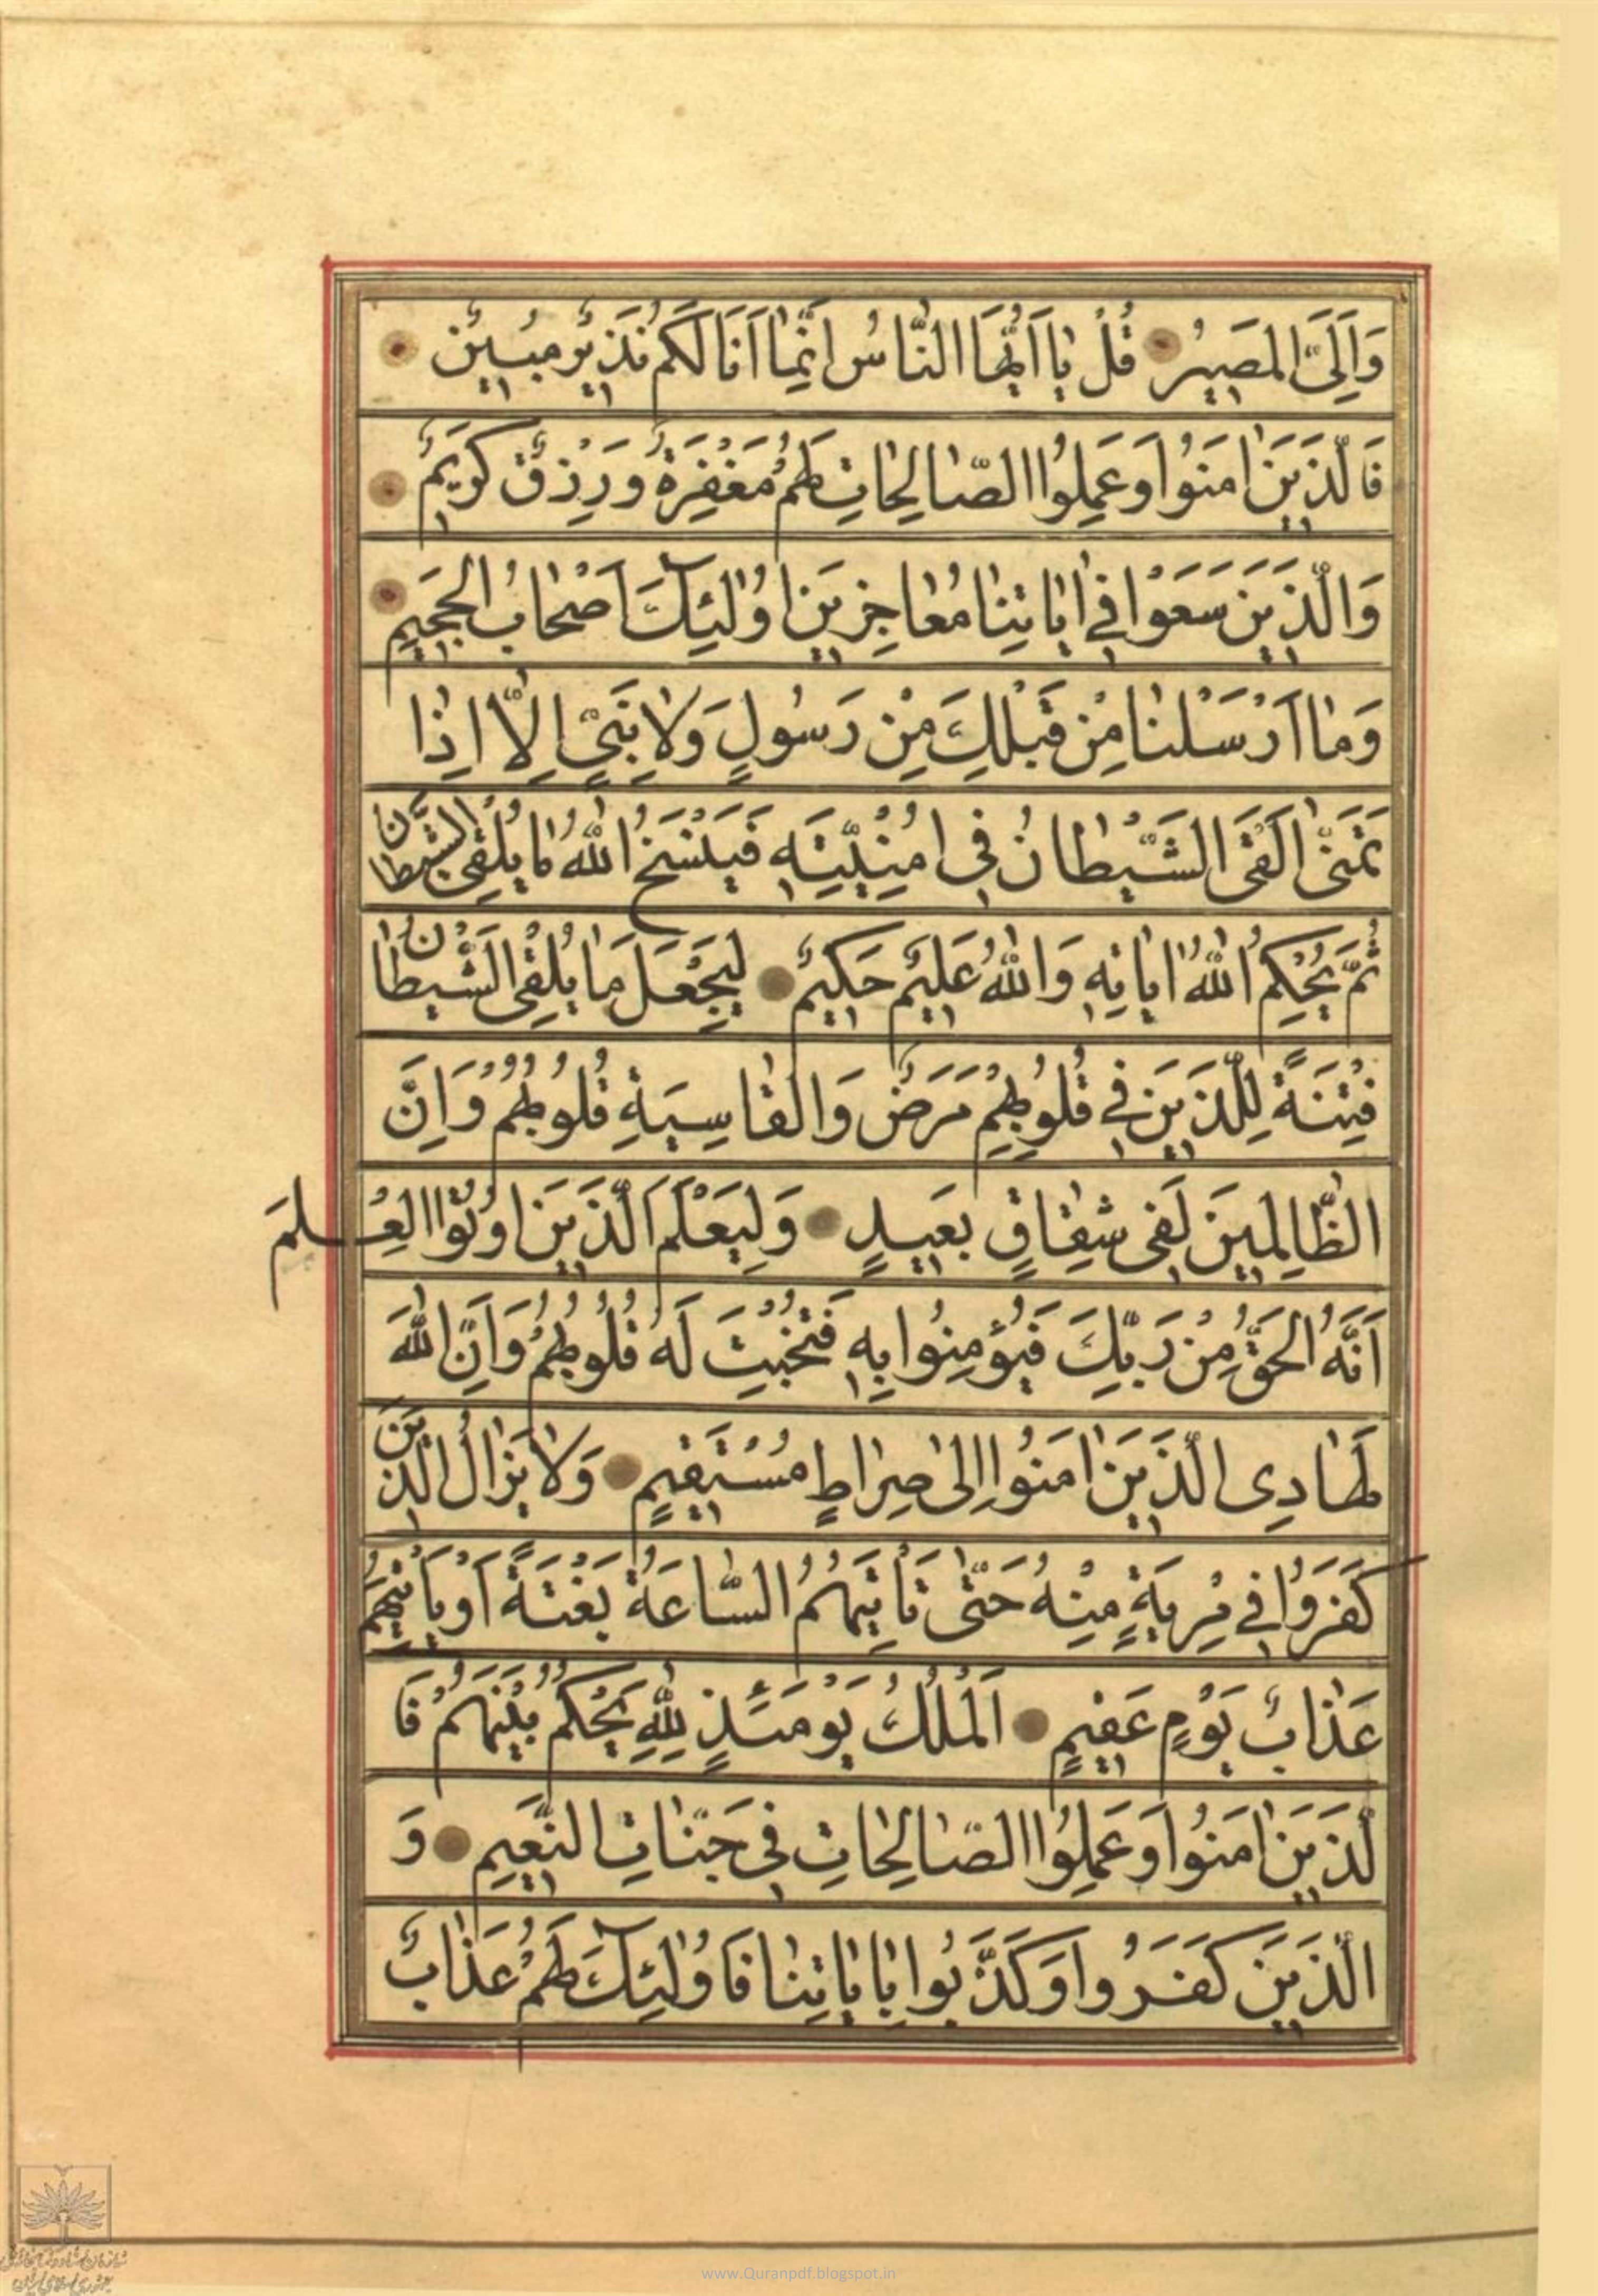 وَاِلَیَّ المَصیرُ قُلْ یٰا اَیُّهَا النّٰاسُ اِنَّمٰا اَنَا لَکُمْ نَذیرٌ مُبینٌ
فَالَّذینَ اٰمَنُوا وَعَمِلُوا الصّٰالِحٰاتِ لَهُمْ مَغْفِرَةٌ وَرِزْقٌ کَریمٌ
وَالَّذینَ سَعَوْا فی اٰیٰاتِنٰا مُعٰاجِزینَ اُولٰئِکَ اَصْحٰابُ الجَحیمِ
وَمٰا اَرْسَلْنٰا مِنْ قَبْلِکَ مِنْ رَسُولٍ وَلٰا نَبِیٍّ اِلّٰا اِذٰا
تَمَنّٰی اَلْقَی الشَّیْطٰانُ فی اُمْنِیَّتِهِ فَیَنْسَخُ اللّٰهُ مٰا یُلْقِی الشَّیْطٰانُ
ثُمَّ یُحْکِمُ اللّٰهُ اٰیٰاتِهِ وَاللّٰهُ عَلیمٌ حَکیمٌ لِیَجْعَلَ مٰا یُلْقِی الشَّیْطٰانُ
فِتْنَةً لِلَّذینَ فی قُلُوبِهِمْ مَرَضٌ وَالْقٰاسِیَةِ قُلُوبُهُمْ وَاِنَّ
الظّٰالِمینَ لَفی شِقٰاقٍ بَعیدٍ وَلِیَعْلَمَ الَّذینَ اُوتُوا العِلْمَ
اَنَّهُ الحَقُّ مِنْ رَبِّکَ فَیُؤْمِنُوا بِهِ فَتُخْبِتَ لَهُ قُلُوبُهُمْ وَاِنَّ اللّٰهَ
لَهٰادِی الَّذینَ اٰمَنُوا اِلیٰ صِرٰاطٍ مُسْتَقیمٍ وَلٰا یَزٰالُ الَّذینَ
کَفَرُوا فی مِرْیَةٍ مِنْهُ حَتّٰی تَأْتِیَهُمُ السّٰاعَةُ بَغْتَةً اَوْ یَأْتِیَهُمْ
عَذٰابُ یَوْمٍ عَقیمٍ اَلْمُلْکُ یَوْمَئِذٍ لِلّٰهِ یَحْکُمُ بَیْنَهُمْ فَا
لَّذینَ اٰمَنُوا وَعَمِلُوا الصّٰالِحٰاتِ فی جَنّٰاتِ النَّعیمِ وَ
الَّذینَ کَفَرُوا وَکَذَّبُوا بِاٰیٰاتِنٰا فَاُولٰئِکَ لَهُمْ عَذٰابٌ
www.Quranpdf.blogspot.in